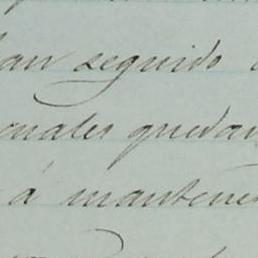 han seguido
onales quedan
á mantene